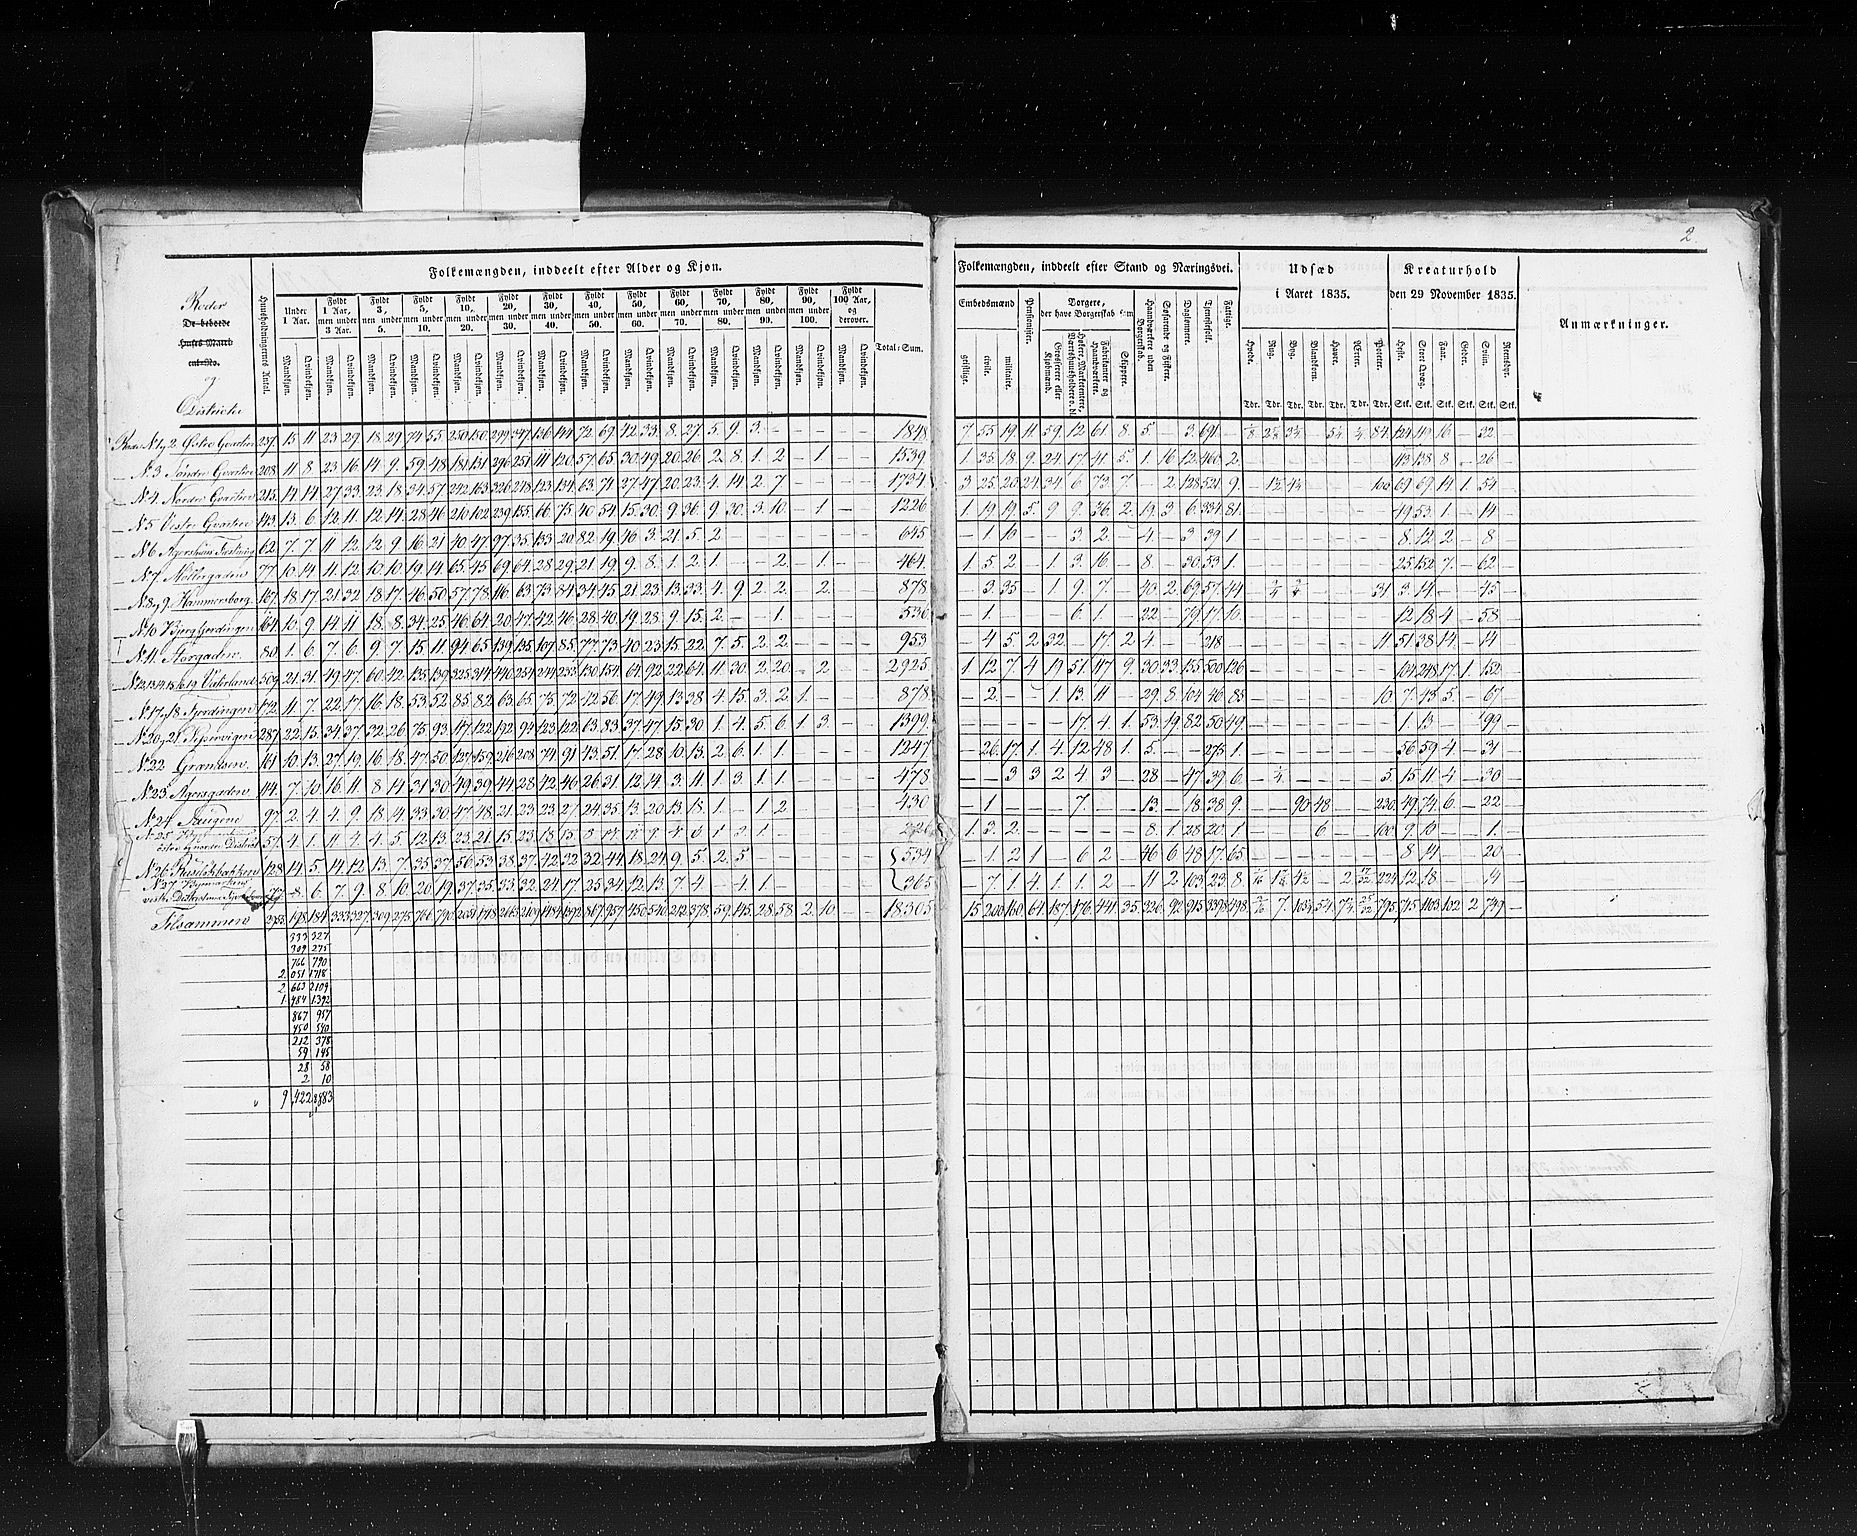 2.
Folkemængden, inddeelt efter Alder og Kjøn.
Roder
De beboede
Huses Matri
cul-No.
og
Districter
Huusholdningernes Antal.
Under 1 Aar.
Fyldt 1 Aar, men under 3 Aar.
Fyldt 3, men under 5.
Fyldt 5, men under 10.
Fyldt 10, men under 20.
Fyldt 20, men under 30.
Fyldt 30, men under 40.
Fyldt 40, men under 50.
Fyldt 50, men under 60.
Fyldt 60, men under 70.
Fyldt 70, men under 80.
Fyldt 80, men under 90.
Fyldt 90, men under 100.
Fyldt 100 Aar, og derover.
Mandkjøn. Qvindekjøn.
Total-Sum.
Folkemængden, inddeelt efter Stand og Næringsvei.
Embedsmænd
geistlige. civile. militaire.
Pensionister.
Borgere, der have Borgerskab som
Grosserere eller Kjøbmænd.
Fabrikanter og Haandværkere.
Skippere.
Haandværkere uden Borgerskab.
Søfarende og Fiskere.
Daglønnere.
Tjenestefolk.
Fattige.
Udsæd i Aaret 1835.
Hvede. Rug. Byg. Blandkorn. Havre. Erter. Poteter.
Tdr. Tdr. Tdr. Tdr. Tdr. Tdr. Tdr.
Kreaturhold den 29 November 1835.
Heste. Stort Qvæg. Faar. Geder. Sviin. Reensdyr.
Stk. Stk. Stk. Stk. Stk. Stk.
Anmærkninger.
Rode No 1 og 2. Østre Qvarteer 237. 15. 11. 23. 29. 18. 29. 74. 55. 250. 150. 299. 347. 136. 144. 72. 69. 42. 33. 8. 27. 5. 9. 3. 1848. 7. 55. 19. 11. 59. 12. 61. 8. 5. - 3. 691. -
No 3 Søndre Qvarteer 208. 11. 8. 23. 16. 14. 9. 59. 48. 181. 131. 296. 251. 111. 120. 57. 65. 30. 49. 20. 26. 2. 8. 1. 2. - 1. 1539. 1. 35. 18. 9. 24. 17. 41. 5. 1. 16. 12. 460. 2. 113. 138. 8. - 26. -
No 4. Nordre Qvarteer 215. 14. 14. 27. 33. 23. 18. 34. 57. 242. 163. 326. 248. 123. 134. 63. 71. 27. 47. 20. 23. 4. 14. 2. 7. 1734. 3. 25. 20. 24. 34. 6. 73. 7. - 2. 128. 521. 9. 69. 69. 14. 1. 54. -
No 5 Vestre Qvarteer 143. 13. 6. 12. 11. 12. 14. 28. 46. 210. 102. 239. 155. 66. 75. 40. 54. 15. 30. 9. 36. 9. 30. 3. 10. - 1. 1226. 1. 19. 19. 5. 9. 9. 36. 2. 19. 3. 6. 334. 81. 49. 53. 1. - 14. -
No 6 Agershuus Fæstning 62. 7. 7. 11. 12. 12. 9. 16. 21. 40. 47. 97. 35. 133. 20. 82. 19. 46. 3. 21. 5. 2. 645. - 1. 10. - - 3. 2. - 4. - 3. 39. 1. 8. 12. 2. - 8. -
No 7. Møllergaden 77. 10. 14. 11. 12. 10. 10. 19. 14. 65. 45. 69. 64. 28. 29. 21. 19. 9. 8. 1. 2. 1. - - 2. - 1. 464. 1. 5. 2. - 1. 3. 16. - 8. - 30. 53. 1. 25. 152. 7. - 62. -
No 8 og 9. Hammersborg 167. 18. 17. 21. 32. 18. 17. 46. 50. 57. 78. 116. 63. 73. 84. 34. 45. 21. 23. 13. 33. 4. 9. 2. 2. - 2. 878. - 3. 35. - 1. 9. 7. - 40. 2. 63. 57. 44. 31. 3. 14. - - 45. -
No 10 Bjergfjerdingen 104. 10. 9. 14. 11. 18. 8. 34. 25. 46. 64. 20. 47. 42. 46. 28. 40. 19. 28. 9. 15. 2. - - 1. 536. - 1. - - - 6. 1. - 22. - 79. 17. 10. 12. 18. 4. - 58. -
No 11. Storgaden 80. 1. 6. 7. 6. 9. 7. 15. 11. 94. 65. 159. 135. 107. 85. 77. 73. 40. 23. 15. 22. 7. 5. 2. 2. 953. - 4. 5. 2. 32. - 17. 2. 4. - - 218. - 11. 51. 38. 14. - 14. -
No 12, 13, 14, 15, 16 og 19. Vaterland 509. 21. 31. 49. 47. 60. 42. 135. 139. 325. 314. 440. 254. 244. 252. 150. 154. 64. 92. 22. 64. 11. 30. 2. 20. - 2. 2925. 1. 12. 7. 4. 19. 51. 47. 9. 30. 33. 155. 500. 126. 104. 248. 17. 1. 152. -
No 17 og 18 Fjerdingen 172. 11. 7. 22. 17. 16. 18. 53. 52. 85. 82. 63. 65. 75. 72. 42. 56. 17. 49. 13. 38. 4. 15. 3. 2. 1. 878. - 2. - - 1. 13. 11. - 29. 8. 104. 46. 85. 10. 7. 15. 5. - 67. -
No 20 og 21 Pjervigen 287. 22. 15. 34. 37. 32. 26. 75. 93. 147. 122. 192. 94. 123. 122. 63. 83. 37. 47. 15. 30. 1. 4. 5. 6. 1. 3. 1399. - - - - - 17. 4. 1. 53. 19. 82. 50. 49. 1. 13. - - 99. -
No 22 Grændsen 161. 10. 13. 27. 19. 16. 18. 47. 50. 127. 159. 216. 208. 74. 91. 43. 51. 17. 28. 10. 13. 2. 6. 1. 1. 1247. - 26. 17. 1. 4. 12. 48. 1. 5. - - 273. 1. 56. 59. 4. - 31. -
No 23. Agersgaden 114. 7. 10. 16. 11. 8. 14. 31. 30. 49. 39. 44. 28. 42. 46. 26. 31. 12. 14. 3. 11. 1. 3. 1. 1. 478. - - 3. 3. 2. 4. 3. - 28. - 47. 39. 6. 5. 15. 11. 4. - 30. -
No 24 Saugene 97. 2. 4. 4. 9. 18. 14. 33. 30. 47. 48. 21. 23. 23. 27. 24. 35. 13. 20. 13. 18. 1. - 1. 2. 430. - 1. - - - 7. - - 13. - 18. 38. 9. 90. 48. 230. 49. 74. 6. - 22. -
No 25 østre og nordre District 57. 4. 1. 11. 4. 4. 5. 12. 13. 23. 21. 15. 23. 18. 15. 1. 3. 2. - - - - - 8. 1. 28. 20. 1. 6. 100. 9. 10. - - 1. -
No 26 Ruseløkbakken 128. 14. 5. 14. 12. 13. 7. 35. 37. 56. 53. 38. 37. 42. 32. 32. 44. 18. 24. 9. 5. 2. 5. 534. - 1. 2. 1. - 6. 2. - 46. 6. 48. 17. 65. 8. 14. - - 20. -
No 27 Bymarkens vestre District 8. 6. 7. 9. 8. 10. 20. 19. 37. 35. 35. 32. 24. 17. 25. 34. 12. 13. 7. 4. - 4. 1. 365. - 7. 1. 4. 1. 1. 2. - 11. 2. 103. 23. 8. 224. 12. 18. - - 9. -
Tilsammen 198. 184. 333. 327. 309. 275. 766. 790. 2051. 1718. 2663. 2109. 1484. 1392. 867. 957. 450. 540. 212. 378. 59. 145. 28. 58. 2. 10. 18305. 15. 200. 160. 64. 187. 176. 441. 35. 326. 92. 915. 3398. 498. 795. 715. 1163. 102. 2. 749. -
333 327
309 275
766 790
2 051 1718
2 663 2109
1 484 1392
867 957
450 540
212 378
59 145
28 58
2 10
9,422 8883